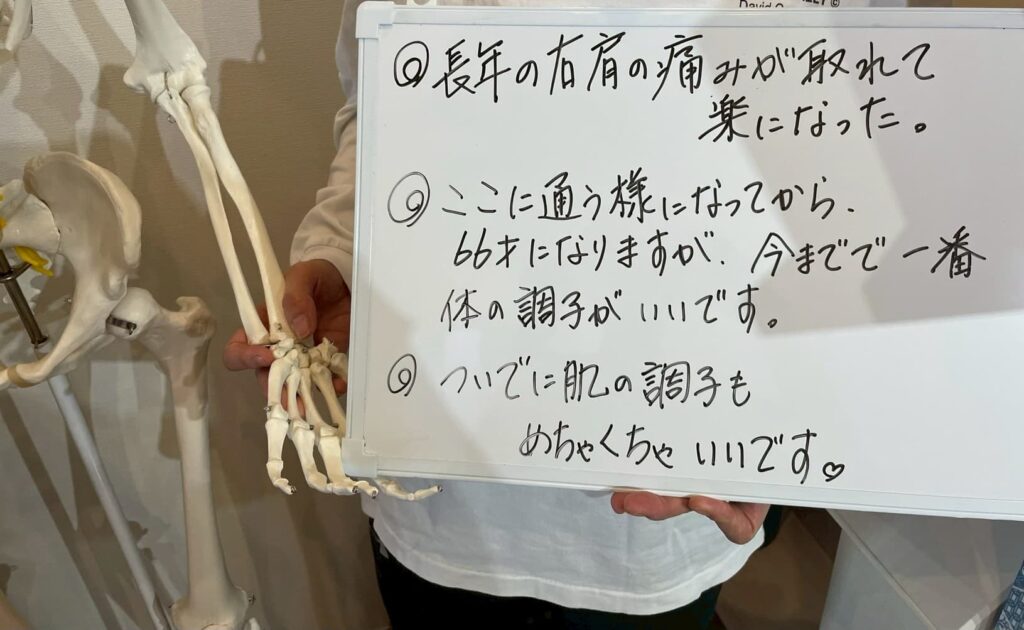 ◎長年の右肩の痛みが取れて
楽になった。
◎ここに通う様になってから、
66才になりますが、今までで一番
体の調子がいいです。
◎ついでに肌の調子も
めちゃくちゃいいです♡